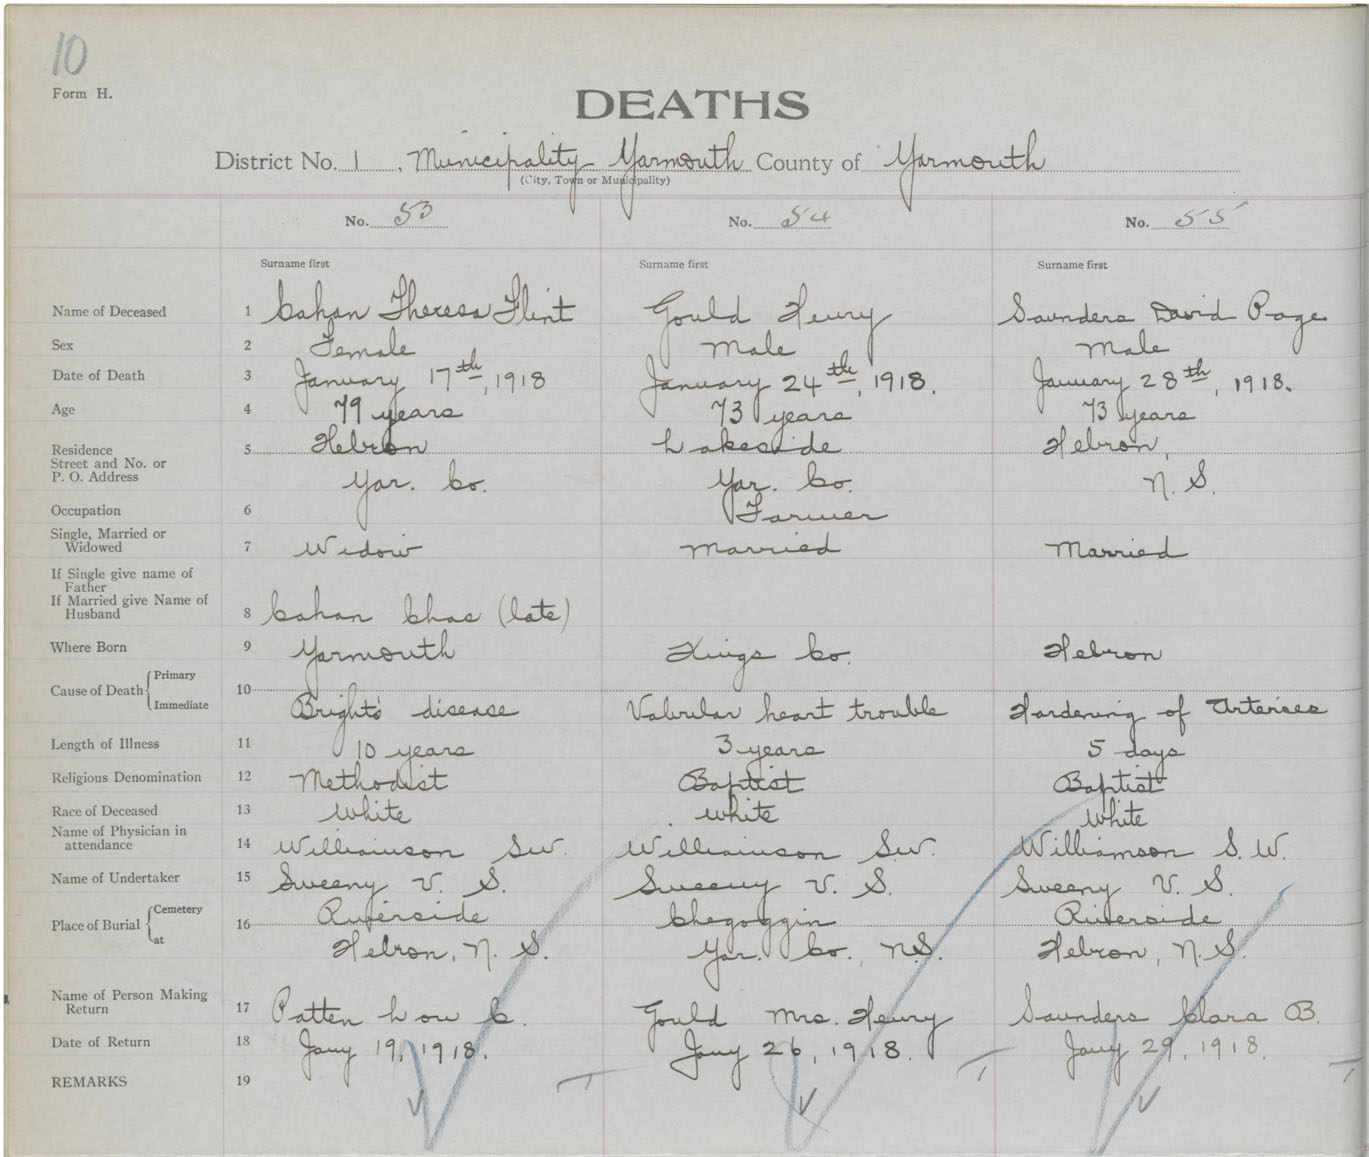 10
Form H.
DEATHS
District No. 1, Municipality Yarmouth County of Yarmouth
(City, Town or Municipality)
No. 53 No. 54 No. 55
Surname first Surname first Surname first
Name of Deceased 1 Cahan Theresa Flint Gould Henry Saunders David Page
Sex 2 Female Male Male
Date of Death 3 January 17th, 1918 January 24th, 1918. January 28th, 1918.
Age 4 79 years 73 years 73 years
Residence 5 Hebron Lakeside Hebron,
Street and No. or
P. O. Address Yar. Co. Yar. Co. N. S.
Occupation 6 Farmer
Single, Married or
Widowed 7 Widow Married Married
If Single give name of
Father
If Married give Name of
Husband 8 Cahan Chas (late)
Where Born 9 Yarmouth Kings Co. Hebron
Cause of Death Primary 10
Immediate Bright's disease Valvular heart trouble Hardening of Arteries
Length of Illness 11 10 years 3 years 5 days
Religious Denomination 12 Methodist Baptist Baptist
Race of Deceased 13 White White White
Name of Physician in
attendance 14 Williamson S.W. Williamson S.W. Williamson S. W.
Name of Undertaker 15 Sweeny V. S. Sweeny V. S. Sweeny V. S.
Place of Burial Cemetery 16 Riverside Chegoggin Riverside
at Hebron, N. S. Yar. Co., N.S. Hebron, N. S.
Name of Person Making
Return 17 Patten Low C. Gould Mrs. Henry Saunders Clara B.
Date of Return 18 Jany 19, 1918. Jany 26, 1918. Jany 29, 1918.
REMARKS 19